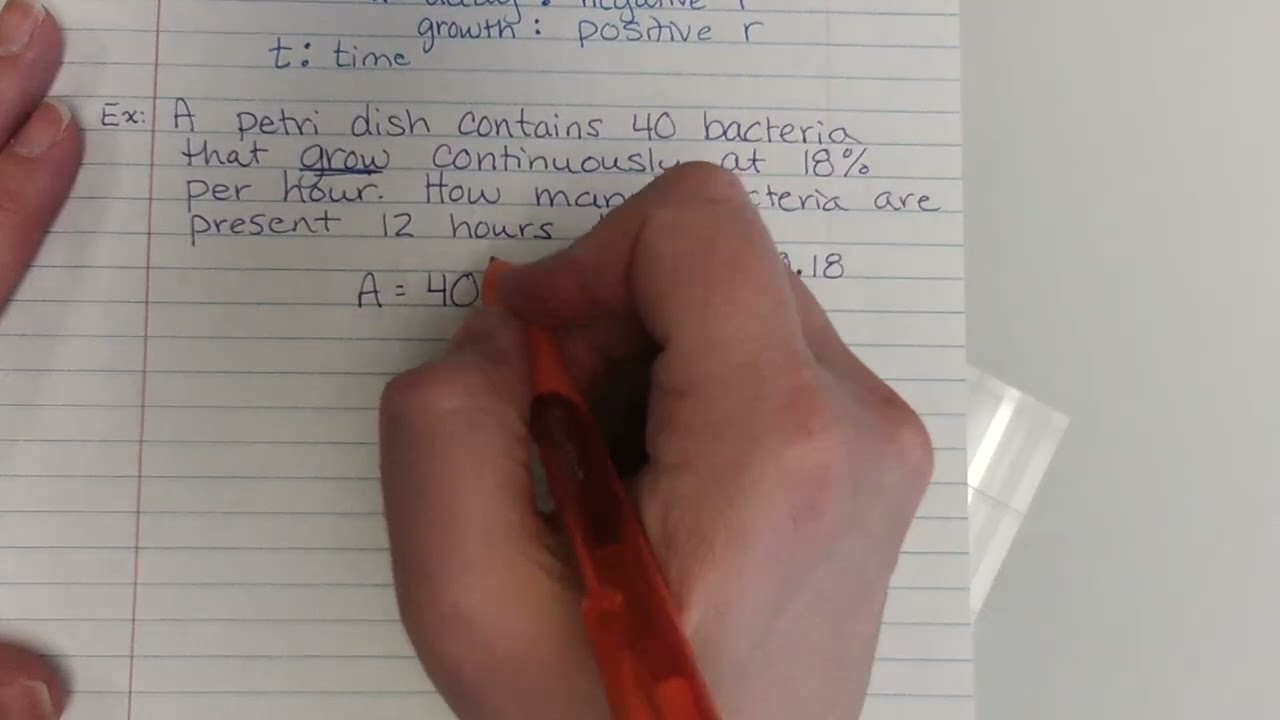 negative r
growth: positive r
t: time
Ex: A petri dish contains 40 bacteria
that grow continuously at 18%
per hour. How are
present 12 hours
A = 40 .18